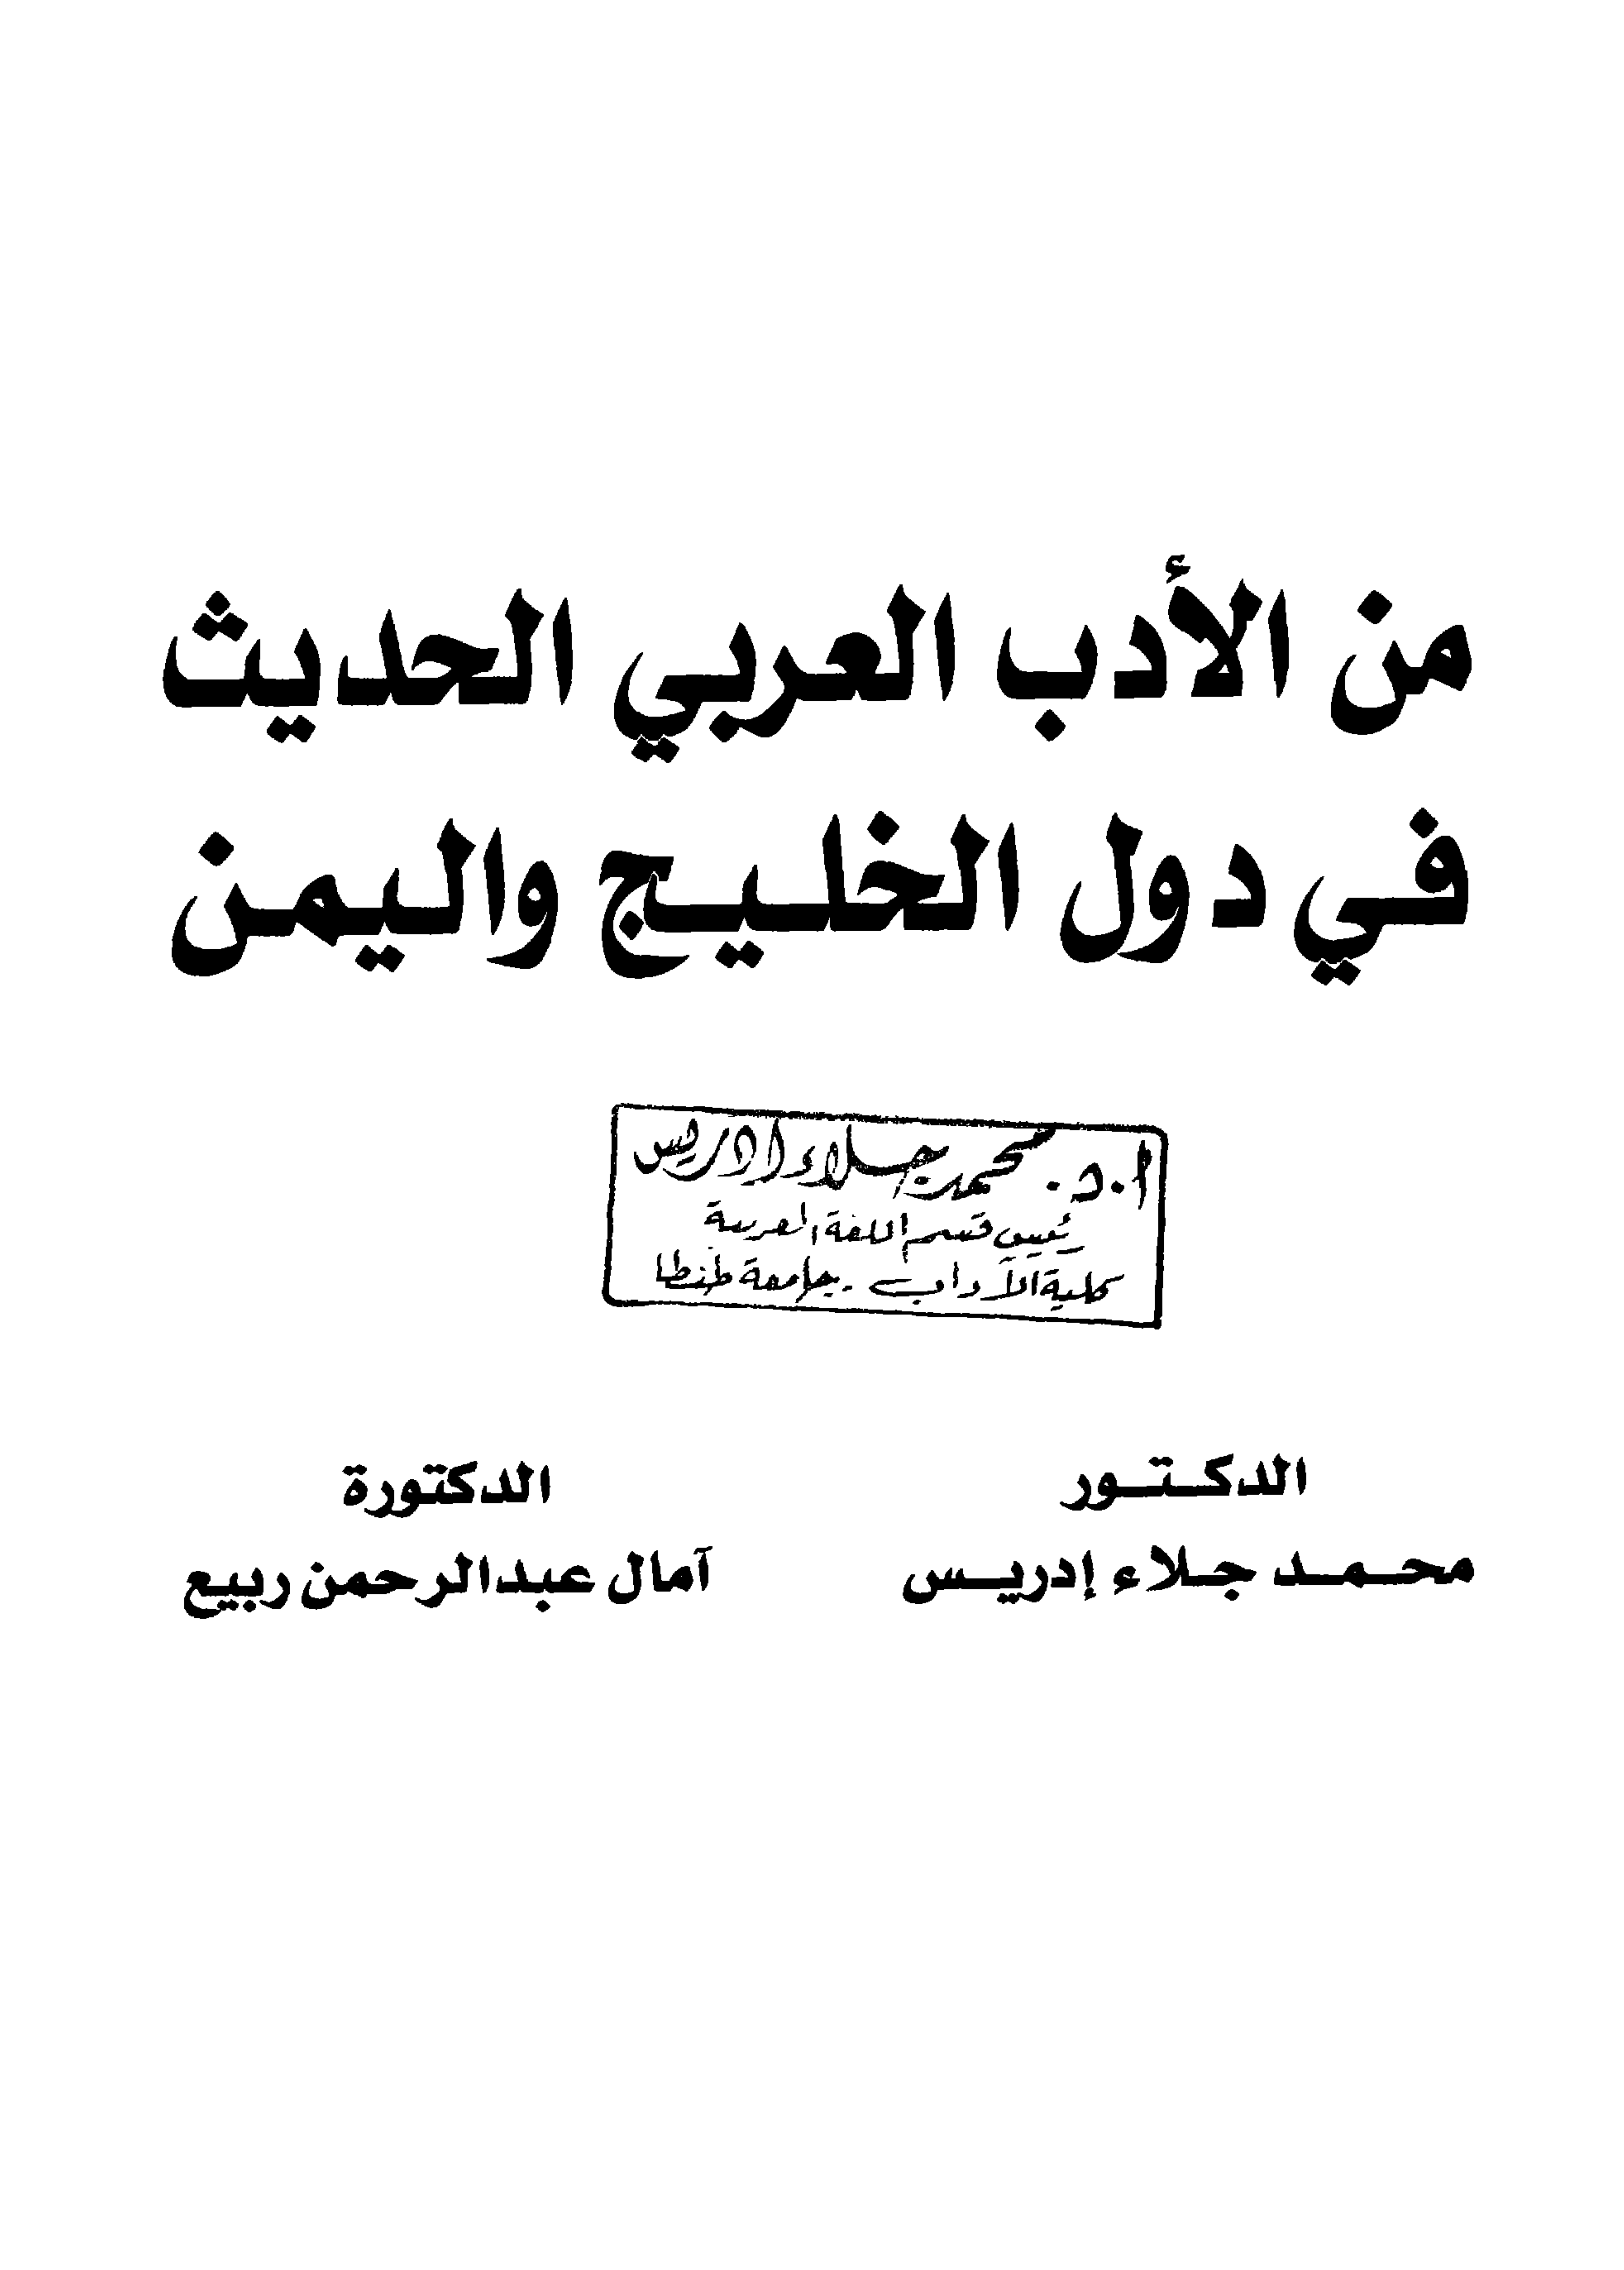 من الأدب العربي الحديث
في دول الخليج واليمن
ا.د. محمد جلاء ادريس
رئيس قسم اللغة العربية
كلية الآداب - جامعة طنطا
الدكتور
محمد جلاء إدريس
الدكتورة
آمال عبدالرحمن ربيع